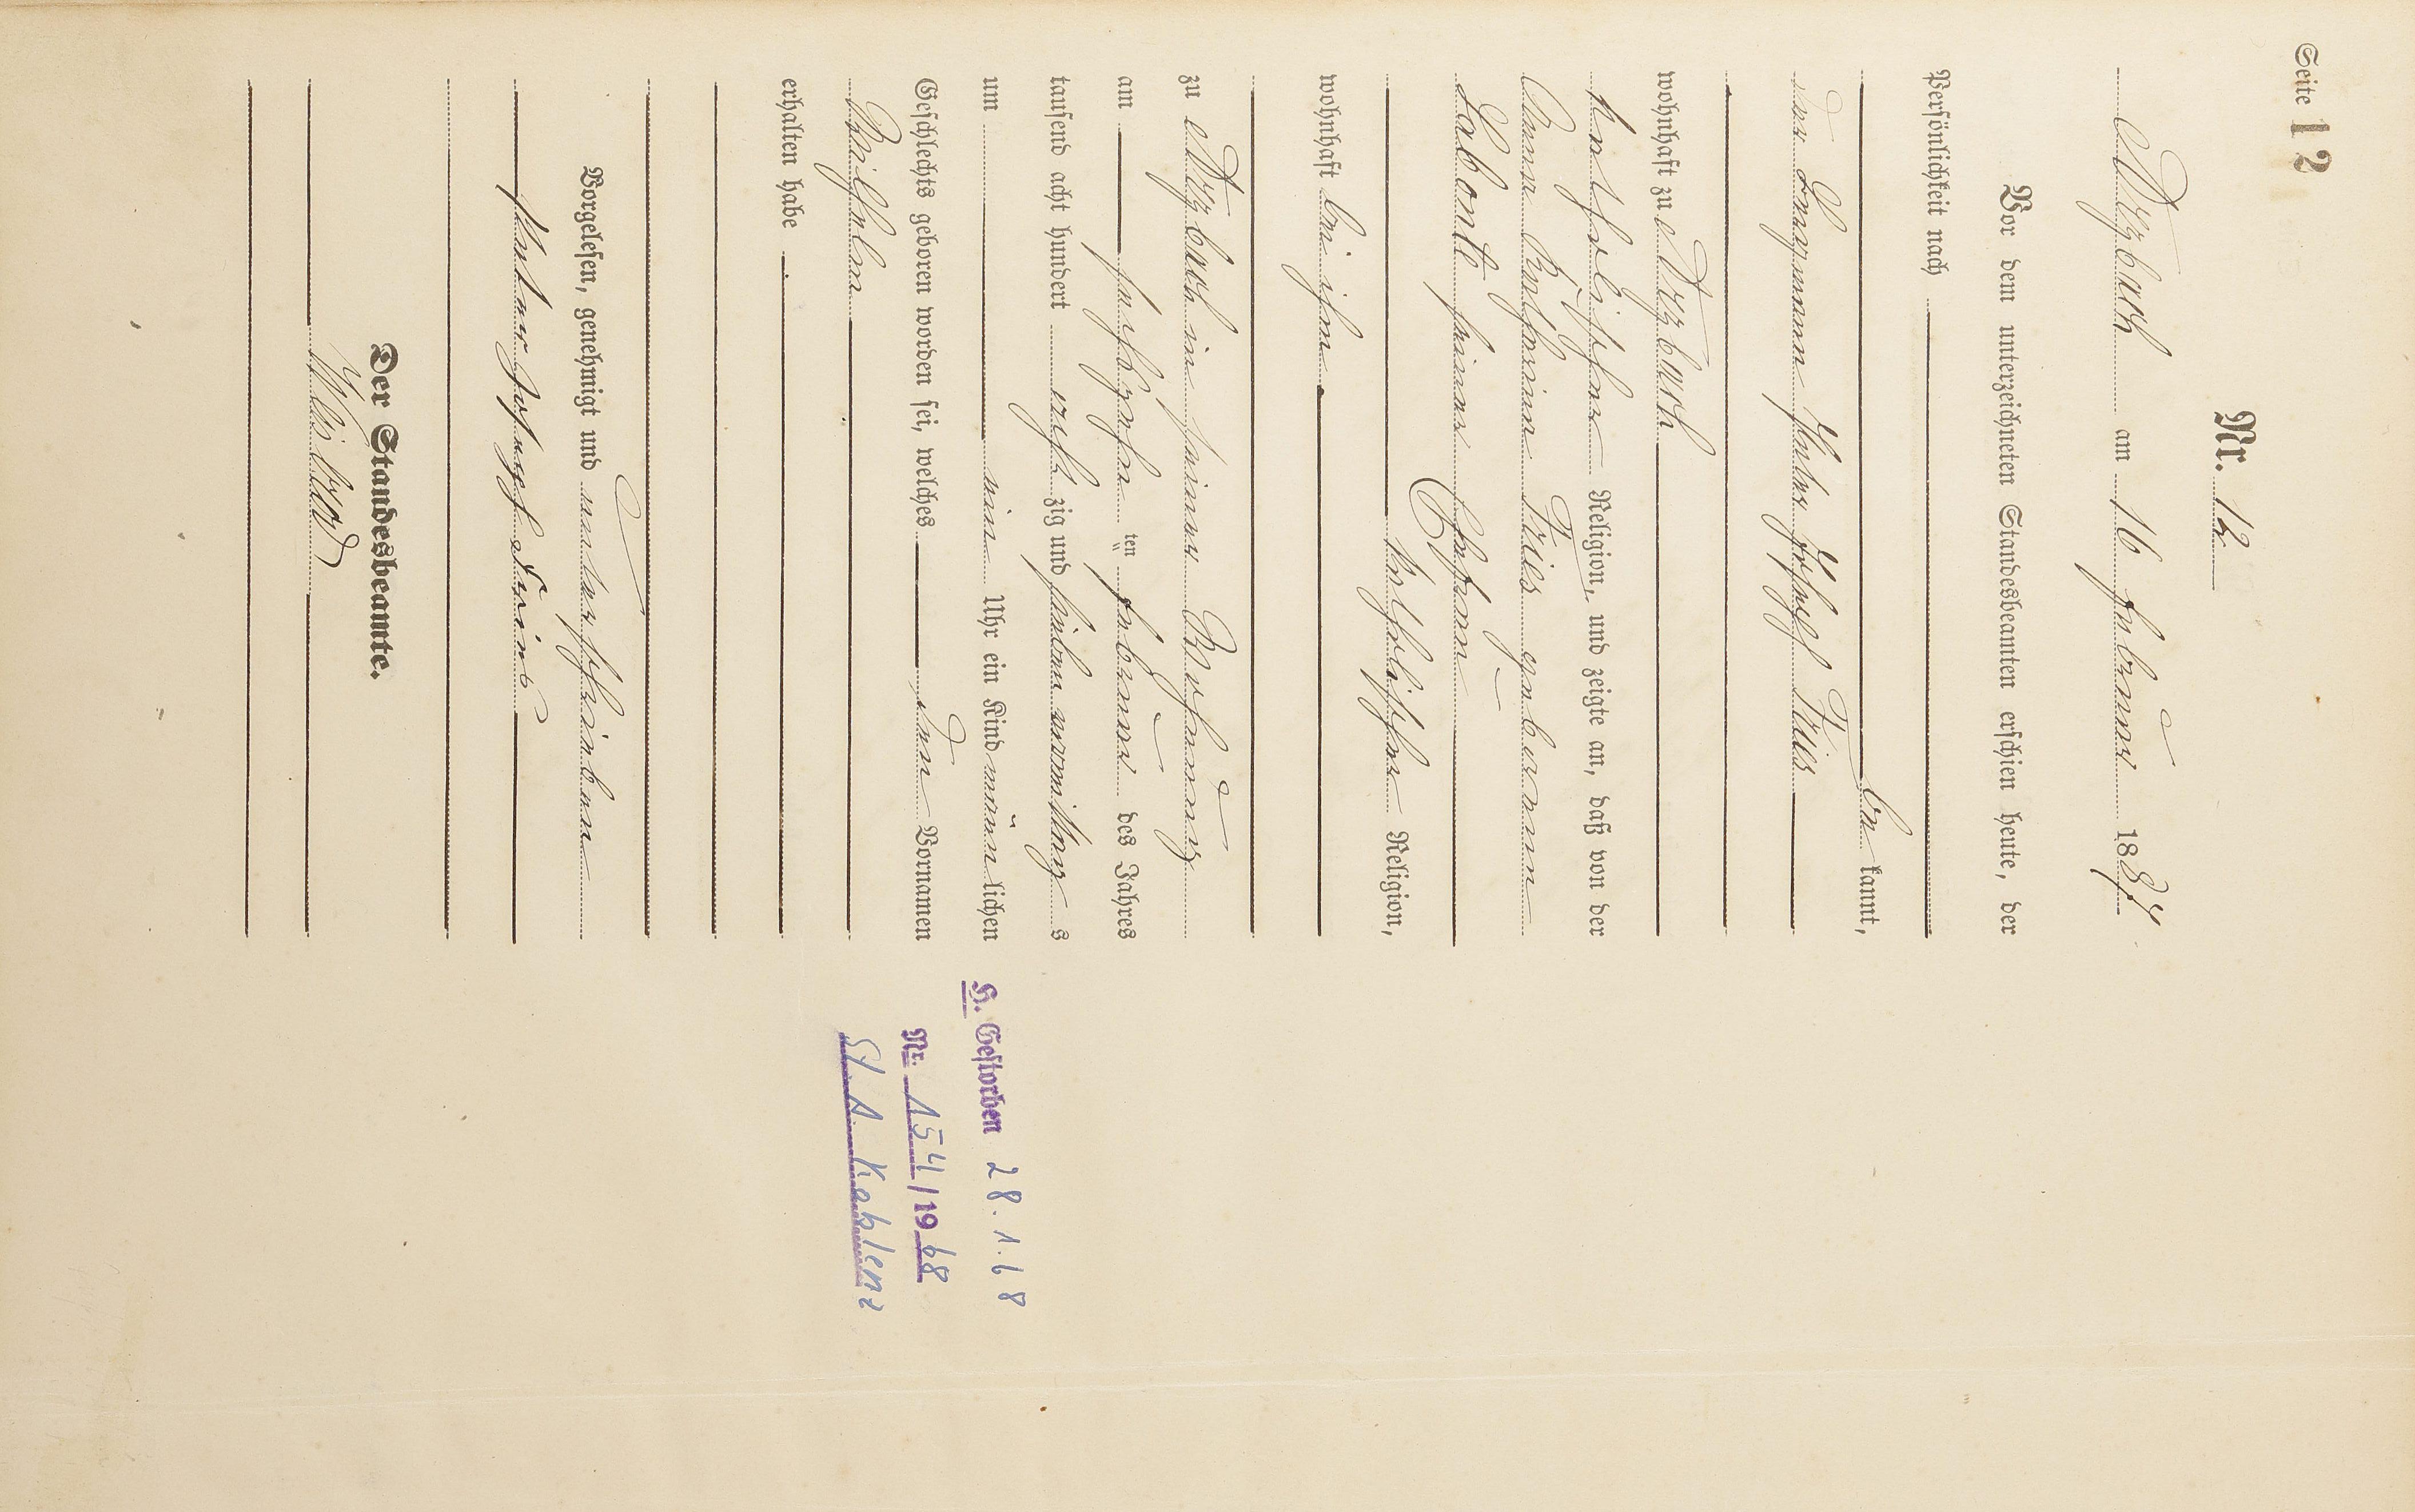 Seite 12
Nr. 12
Arzbach am 16 Februar 1887.
Vor dem unterzeichneten Standesbeamten erschien heute, der
Persönlichkeit nach
be kannt,
der Bergmann Peter Joseph Fries
wohnhaft zu Arzbach
katholischer Religion, und zeigte an, daß von der
Anna Katharina Fries geborenen
Labonte seiner Ehefrau
katholischer Religion,
wohnhaft bei ihm
zu Arzbach in seiner Wohnung
am sechszehn ten Februar des Jahres
tausend acht hundert acht zig und sieben vormittag s
um ein Uhr ein Kind männ lichen
Geschlechts geboren worden sei, welches den Vornamen
Wilhelm
erhalten habe
Vorgelesen, genehmigt und unterschrieben
Peter Josef Fries
Der Standesbeamte.
H. Gestorben 28.1.68
Nr. 154/1968
St A. Koblenz